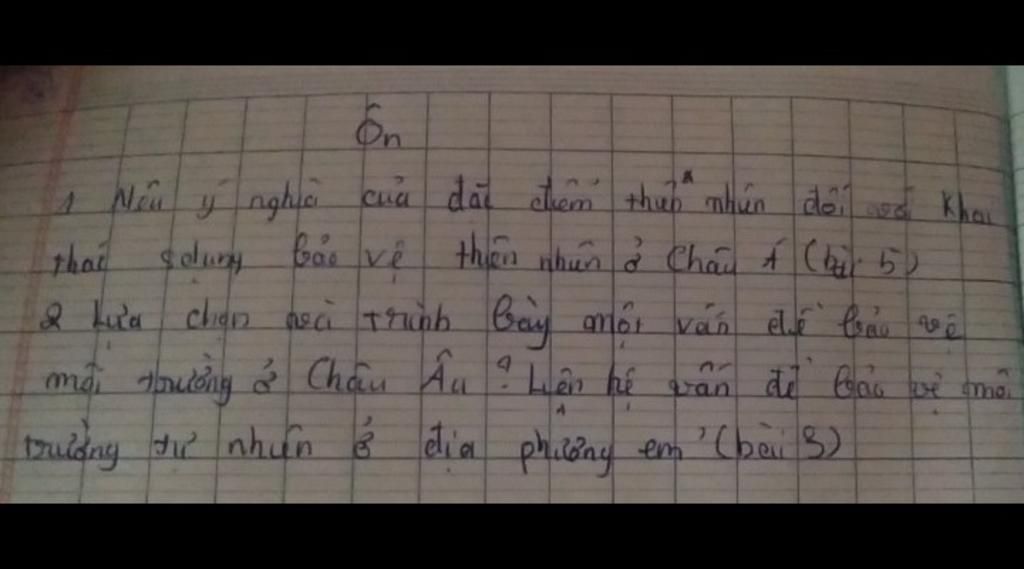 Ôn
1 Nêu ý nghĩa của đặc điểm thiên nhiên đối với khai
thác sdụng bảo vệ thiên nhiên ở Châu Á (bài 5)
2 Lựa chọn và trình bày một vấn đề bảo vệ
môi trường ở Châu Âu ? Liên hệ vấn đề bảo vệ môi
trường tự nhiên ở địa phương em (bài 3)